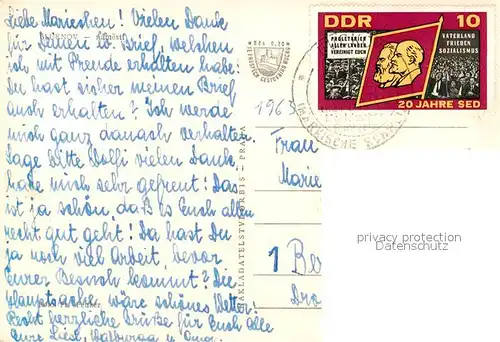 Liebe Mariechen! Vielen Dank
für Deinen lb. Brief, welchen
ich mit Freude erhalten habe.
Du hast sicher meinen Brief
auch erhalten? Ich werde
mich ganz danach verhalten.
Sage bitte Wolfi vielen Dank,
habe mich sehr gefreut! Das
ist ja schön, daß es Euch allen
recht gut geht! Da hast Du
ja noch viel Arbeit, bevor
Eurer Besuch kommt? Die
Hauptsache wäre schönes Wetter!
Recht herzliche Grüße für Euch alle
Eure Liesl, Walburga u. Oma.
NAKLADATELSTVÍ ORBIS - PRAHA
1963
DDR 10
PROLETARIER
ALLER LÄNDER
VEREINIGT EUCH
VATERLAND
FRIEDEN
SOZIALISMUS
20 JAHRE SED
Frau
Marie
1 Be
Dro
privacy protection
Datenschutz